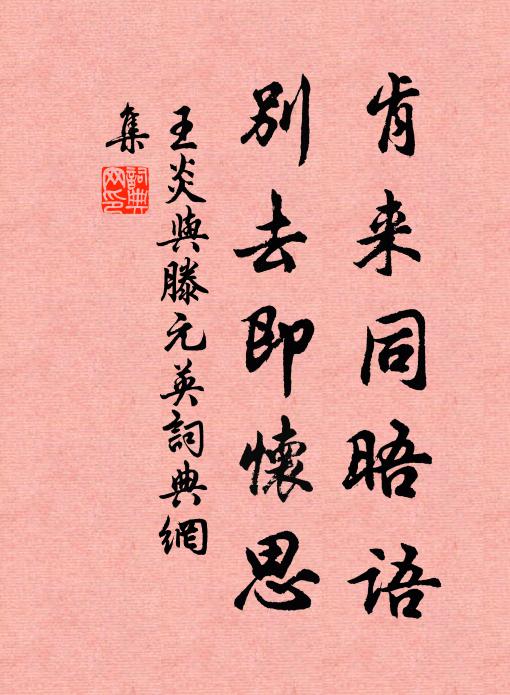 肯来同晤语
别去即懷思
王炎與滕元英詞典網
集
詞典
网印